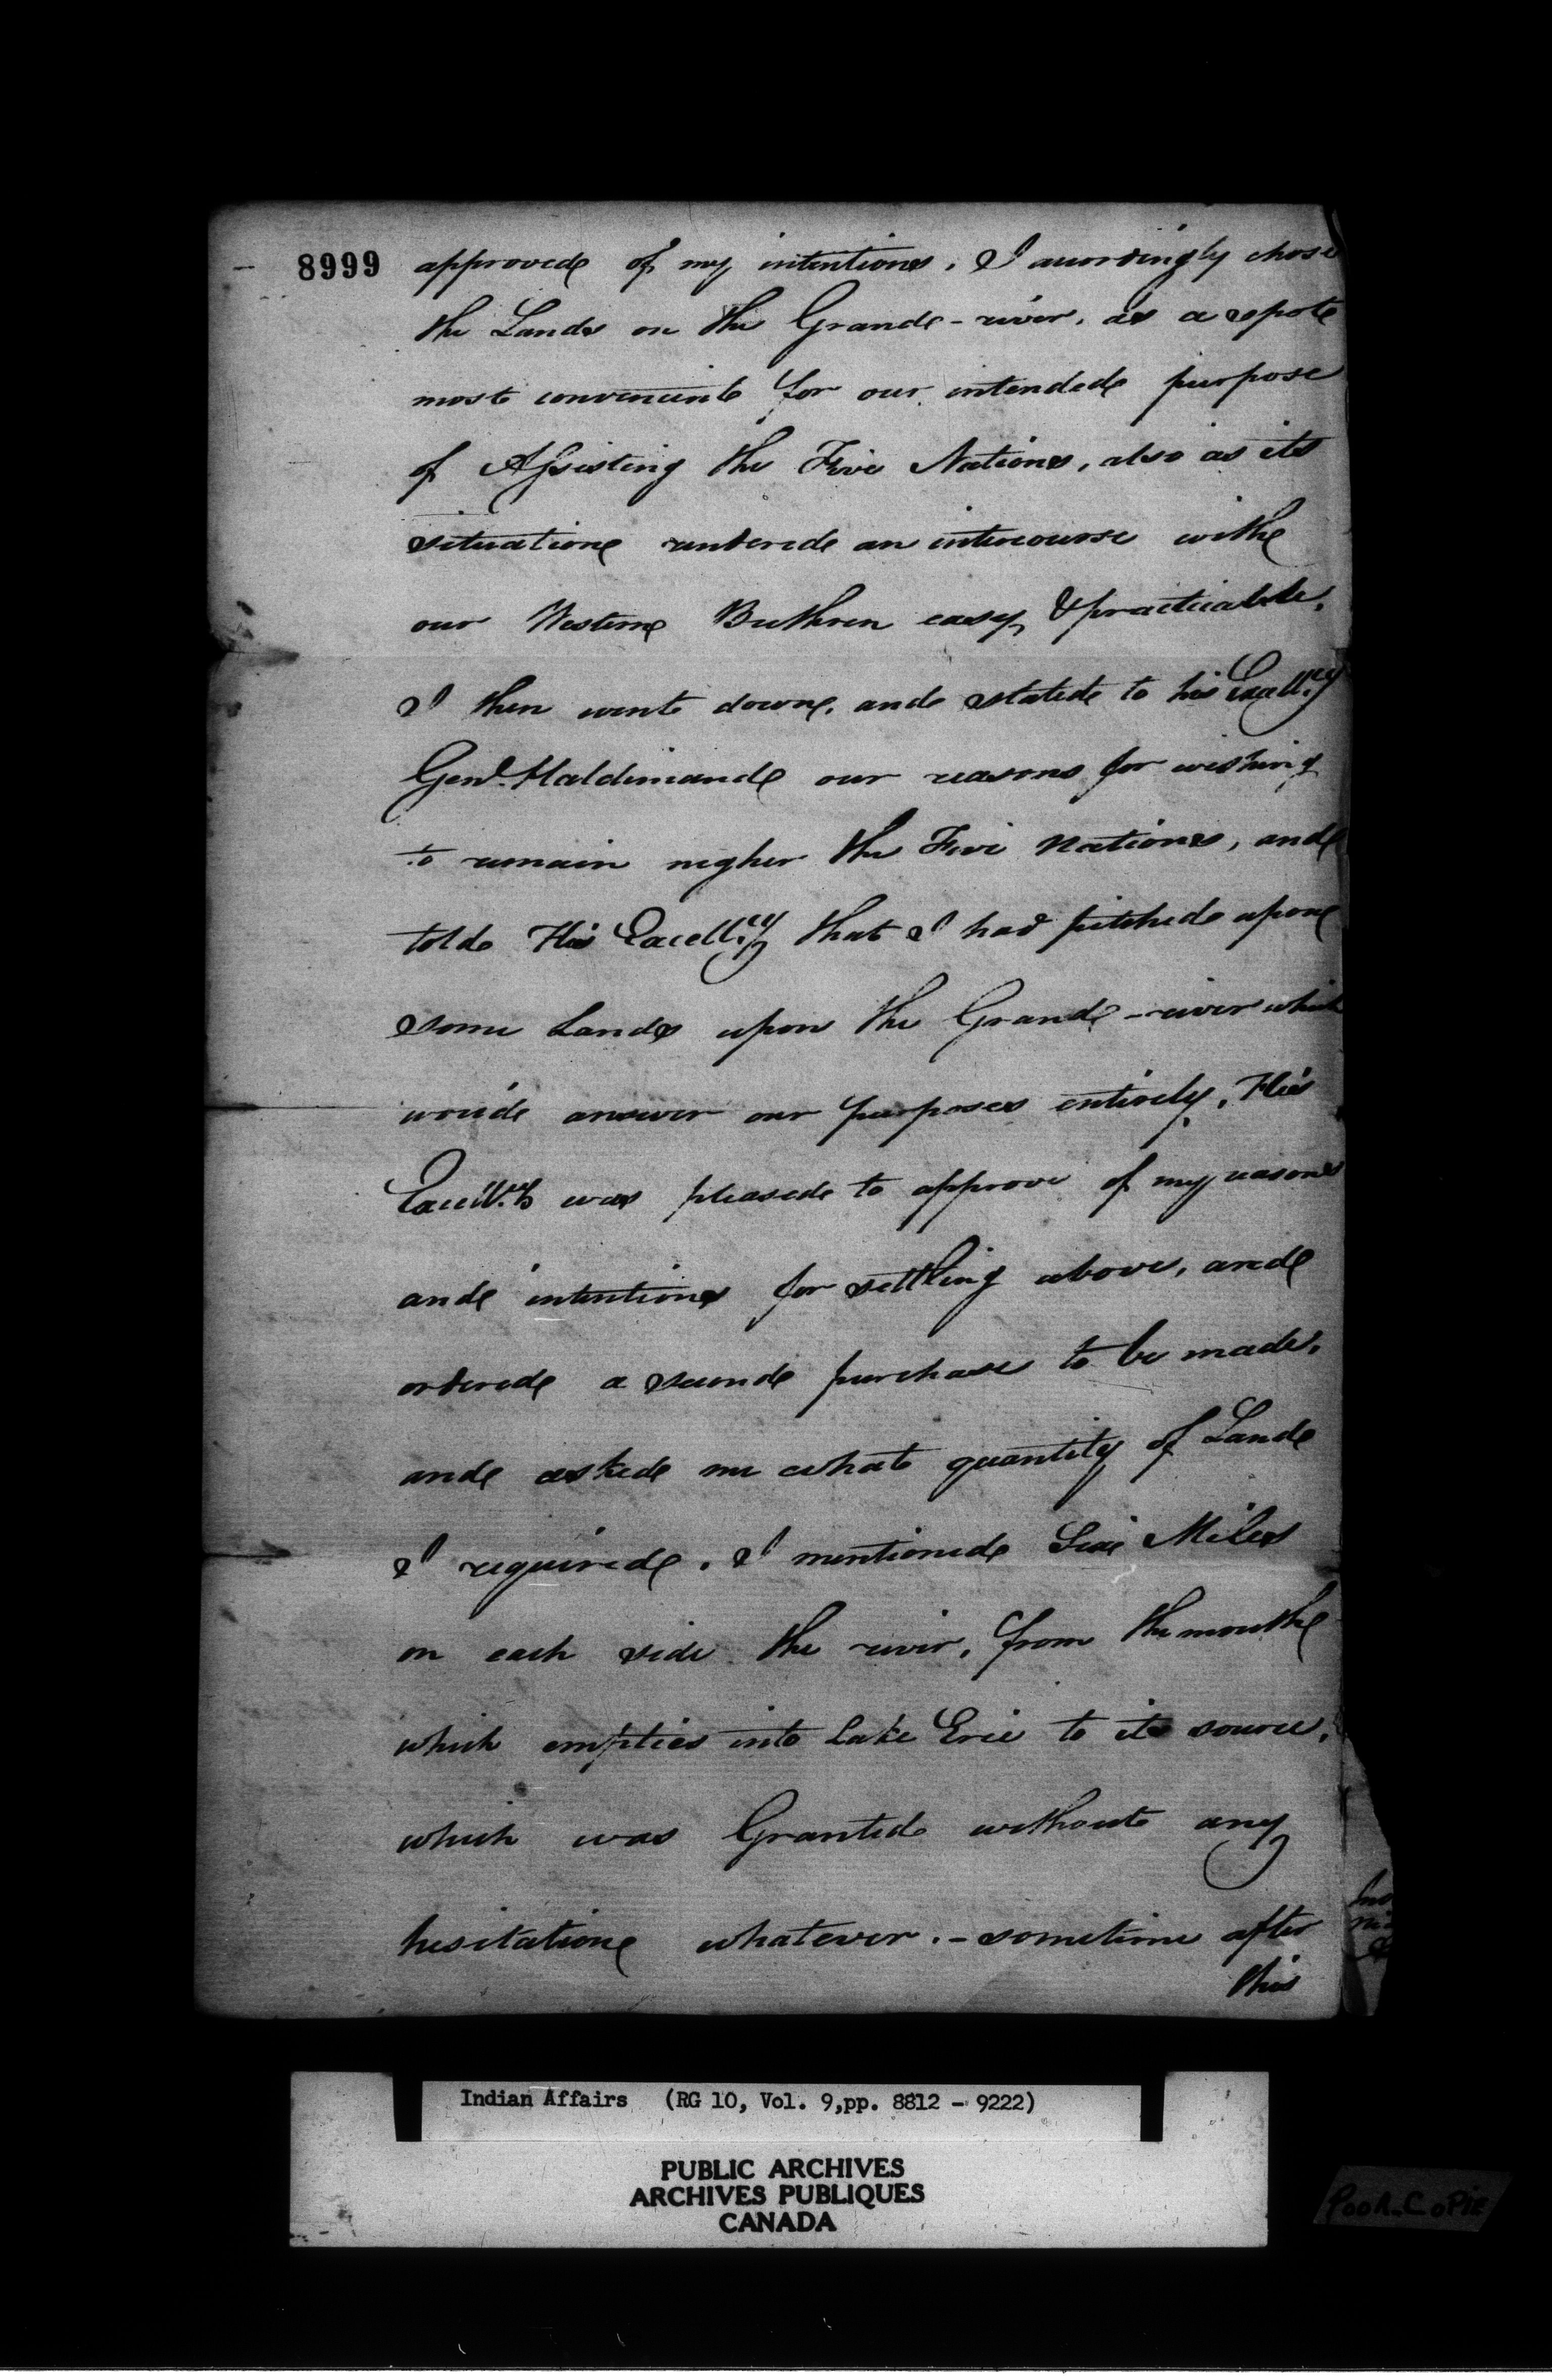 8999 approved of my intentions. I accordingly chose
the Lands on the Grand-river, as a spot
most convenient for our intended purpose
of Assisting the Five Nations, also as its
situation rendered an intercourse with
our Western Brethren easy & practicable.
I then went down, and stated to his Excell.cy
Genl. Haldimand our reasons for wishing
to remain nigher the Five Nations, and
told His Excell.cy that I had pitched upon
some Lands upon the Grand-river which
would answer our purposes entirely. His
Excell.cy was pleased to approve of my reasons
and intentions for settling above, and
ordered a second purchase to be made,
and asked me what quantity of Land
I required. I mentioned Six Miles
on each side the river, from the mouth
which empties into Lake Erie to its source,
which was Granted without any
hesitation whatever. - sometime after
this
Indian Affairs (RG 10, Vol. 9, pp. 8812 - 9222)
PUBLIC ARCHIVES
ARCHIVES PUBLIQUES
CANADA
Poor-Copie